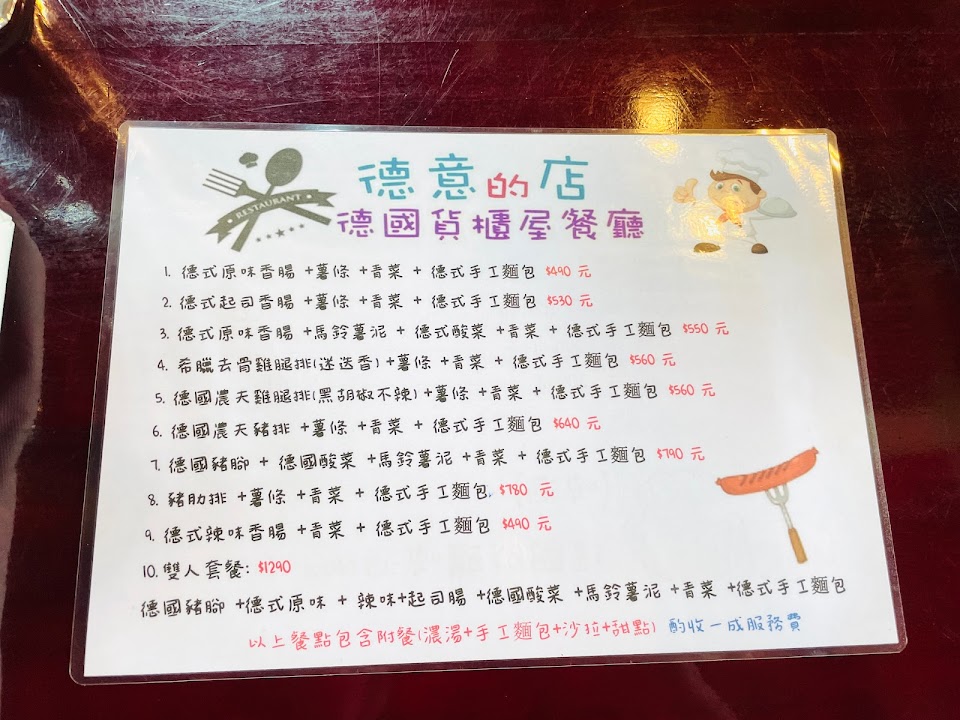 RESTAURANT
德意的店
德國貨櫃屋餐廳
1. 德式原味香腸 +薯條 +青菜 + 德式手工麵包 $490 元
2. 德式起司香腸 +薯條 +青菜 + 德式手工麵包 $530 元
3. 德式原味香腸 +馬鈴薯泥 + 德式酸菜 +青菜 + 德式手工麵包 $550 元
4. 希臘去骨雞腿排(迷迭香) +薯條 +青菜 + 德式手工麵包 $560 元
5. 德國濃天雞腿排(黑胡椒不辣) +薯條 +青菜 + 德式手工麵包 $560 元
6. 德國濃天豬排 +薯條 +青菜 + 德式手工麵包 $640 元
7. 德國豬腳 + 德國酸菜 +馬鈴薯泥 +青菜 + 德式手工麵包 $790 元
8. 豬肋排 +薯條 +青菜 + 德式手工麵包. $780 元
9. 德式辣味香腸 +青菜 + 德式手工麵包 $490 元
10. 雙人套餐: $1290
德國豬腳 +德式原味 + 辣味+起司腸 +德國酸菜 +馬鈴薯泥 +青菜 +德式手工麵包
以上餐點包含附餐(濃湯+手工麵包+沙拉+甜點) 酌收一成服務費